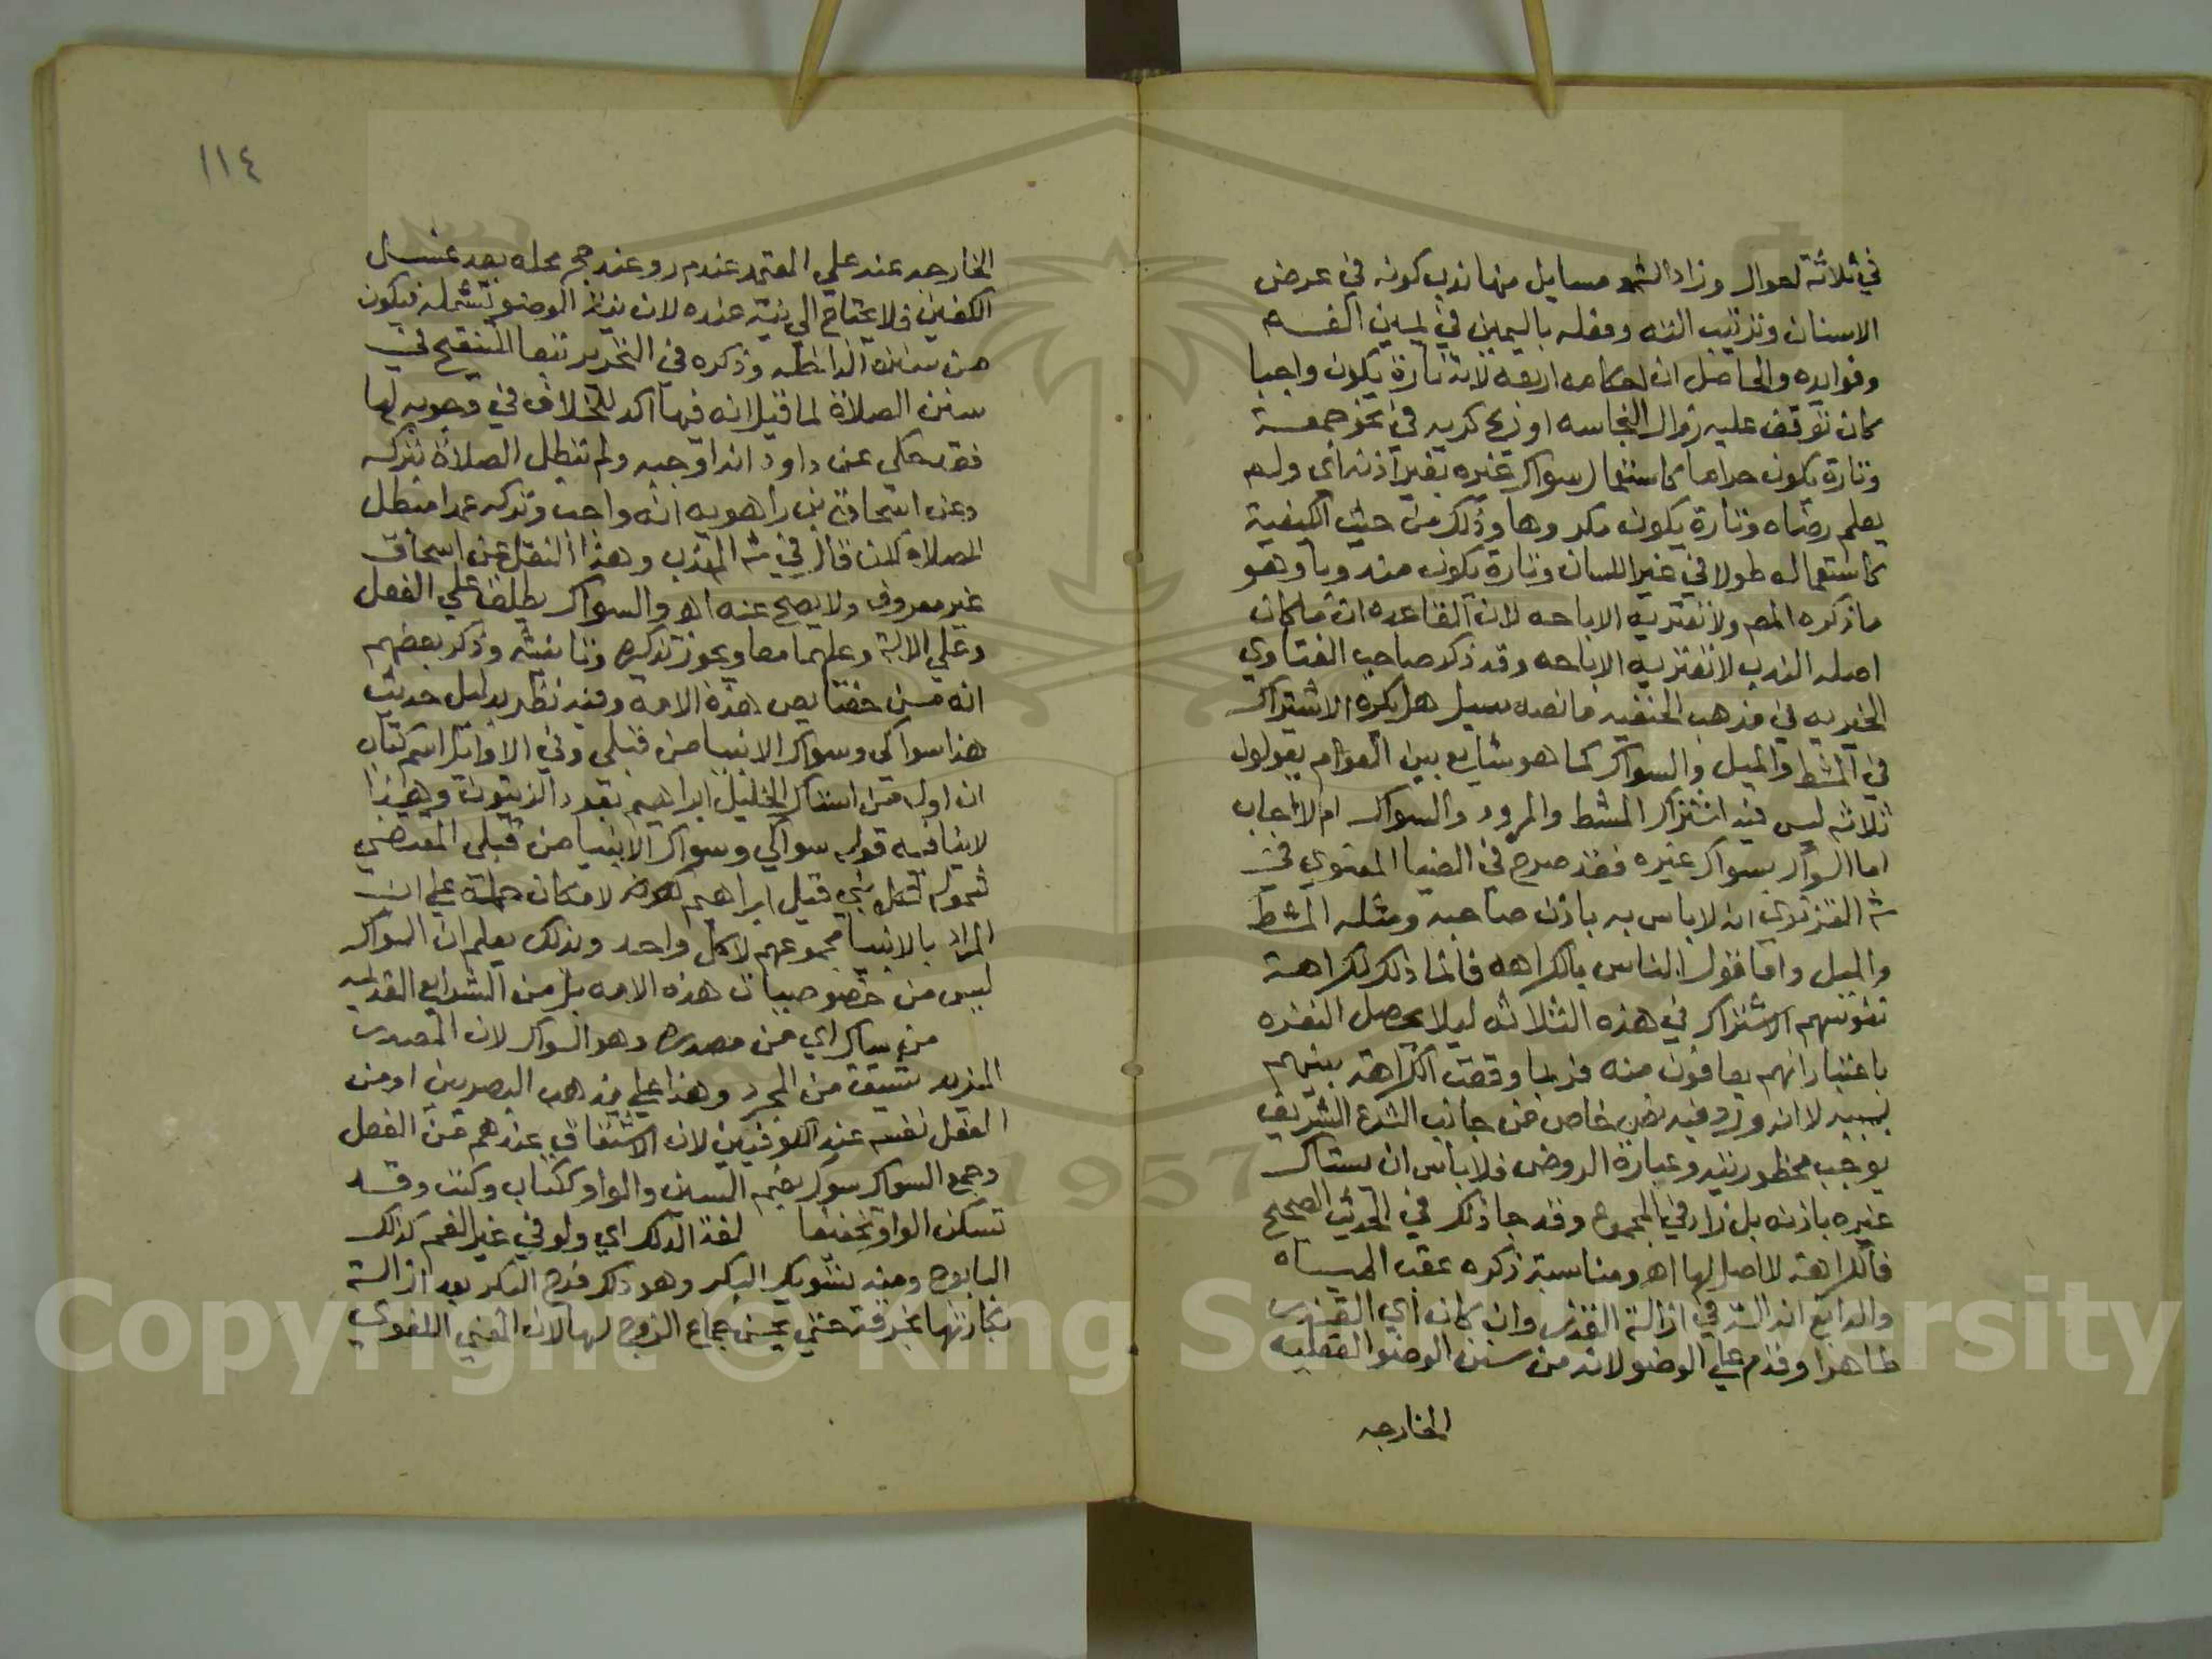 في ثلاثة احوال وزاد الشم مسايل منها ندب كونه في عرض
الاسنان وترتيب الته وفعله باليمين في يمين الفم
وفوايده والحاصل ان احكامه اربعة لانه تارة يكون واجبا
كان توقف عليه زوال النجاسه او ريح كريه في نحو جمعة
وتارة يكون حراما كاستعمال سواك غيره بغير اذنه اي ولم
يعلم رضاه وتارة يكون مكروها وذلك من حيث الكيفية
كاستعماله طولا في غير اللسان وتارة يكون مندوبا وهو
ما ذكره المص ولا تعتريه الاباحه لان القاعده ان ما كان
اصله الندب لا تعتريه الاباحه وقد ذكر صاحب الفتاوي
الخيريه في مذهب الحنفيه ما نصه سيل هل يكره الاشتراك
في المشط والميل والسواك كما هو شايع بين العوام يقولون
ثلاثه ليس فيه اشتراك المشط والمرود والسواك ام لا اجاب
اما السواك بسواك غيره فقد صرح في الضيا المعنوي في
شه الغزنوي انه لا باس به باذن صاحبه ومثله المشط
والميل واما قول الناس بالكراهه فانما ذلك لكراهة
نفوسهم الاشتراك في هذه الثلاثه ليلا يحصل النفره
باعتبار انهم يعافون منه فربما وقعت الكراهة بينهم
بسببه لا انه ورد فيه نص خاص من جانب الشرع الشريف
يوجب محظوريته وعبارة الروض فلا باس ان يستاك
غيره باذنه بل زاد في المجموع وقد جا ذلك في الحديث الصحيح
فالكراهة لا اصل لها اهـ ومناسبة ذكره عقب المياه
والدابغ انه الة في ازالة القذر وان كان اي القذر
طاهرا وقدم علي الوضو لانه من سنن الوضو الفعليه
الخارجه
١١٤
الخارجه عنه علي المعتمد عند م ر وعند حج محله بعد غسل
الكفين فلا يحتاج الي نية عنده لان نية الوضو تشمله فيكون
من سننه الداخله وذكره في التحرير تبعا للتنقيح في
سنن الصلاة لما قيل انه فيها اكد للخلاف في وجوبه لها
فقد حكي عن داود انه اوجبه ولم تبطل الصلاة بتركه
وعن اسحاق بن راهويه انه واجب وتركه عمدا مبطل
للصلاه لكن قال في شه المهذب وهذا النقل عن اسحاق
غير معروف ولا يصح عنه اهـ والسواك يطلق علي الفعل
وعلي الالة وعليهما معا ويجوز تذكيره وتانيثه وذكر بعضهم
انه من خصايص هذه الامه وفيه نظر بدليل حديث
هذا سواكي وسواك الانبيا من قبلي وفي الاوايل اسم كتاب
ان اول من استاك الخليل ابراهيم بعود الزيتون وهذا
لا ينافيه قوله سواكي وسواك الانبيا من قبلي المقتضي
شموله لكل نبي قبل ابراهيم لامكان حمله علي ان
المراد بالانبيا مجموعهم لا كل واحد وبذلك يعلم ان السواك
ليس من خصوصيات هذه الامه بل من الشرايع القديمه
من ساك اي من مصدره وهو السواك لان المصدر
المزيد يشتق من المجرد وهذا علي مذهب البصريين او من
الفعل نفسه عند الكوفيين لان الاشتقاق عندهم من الفعل
وجمع السواك سوك بضم السين والواو ككتاب وكتب وقد
تسكن الواو تخفيفا لغة الدلك اي ولو في غير الفم كدلك
البابوج ومنه تشويك البكر وهو دلك فرج البكر بعد ازالة
بكارتها بخرقة حتي يحسن جماع الزوج لها لان المعني اللغوي
Copyright © King Saud University
1957